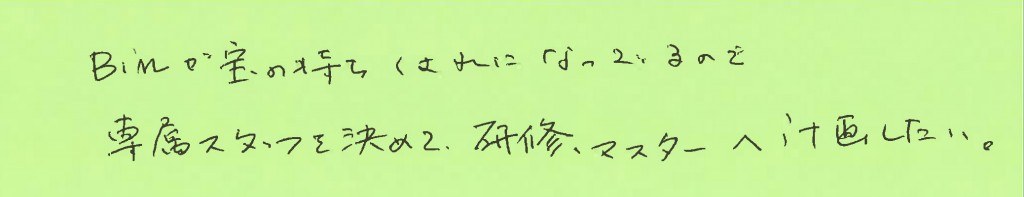 BiMが宝の持ちくされになっているので
専属スタッフを決めて、研修、マスターへ計画したい。